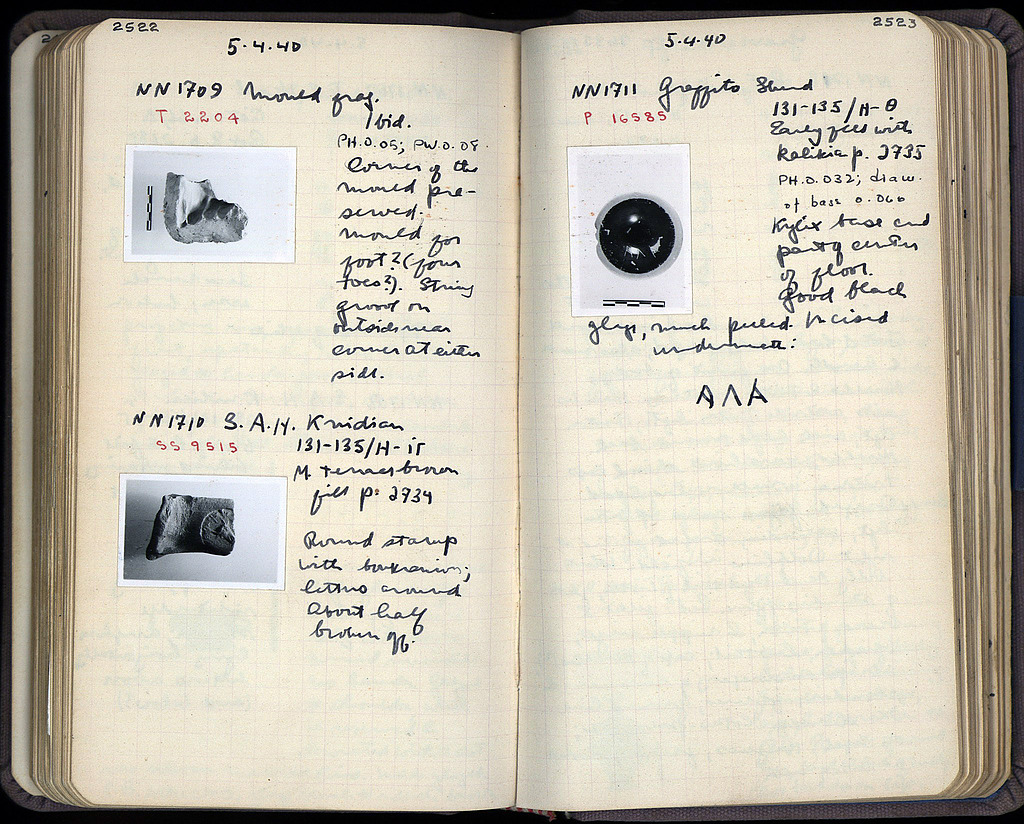 2522
5·4·40
NN1709 Mould frag.
T 2204
Ibid.
PH.0.05; PW.0.08.
Corner of the
mould pre-
served.
Mould for
foot? (four
toes?). String
groove on
outside near
corner at either
side.
NN1710 S.A.H. Knidian
SS 9515 131-135/H-ΙΓ
M. terraes brown
fill p. 2734
Round stamp
with boukranion;
letters around
About half
broken off.
2523
5·4·40
NN1711 Graffito Sherd
P 16585 131-135/H-Θ
Early fill with
p. 2735
PH.0.032; diam.
of base 0.060
Kylix base and
part of center
of floor.
Good black
glaze, much peeled. Incised
underneath:
ΑΛΑ